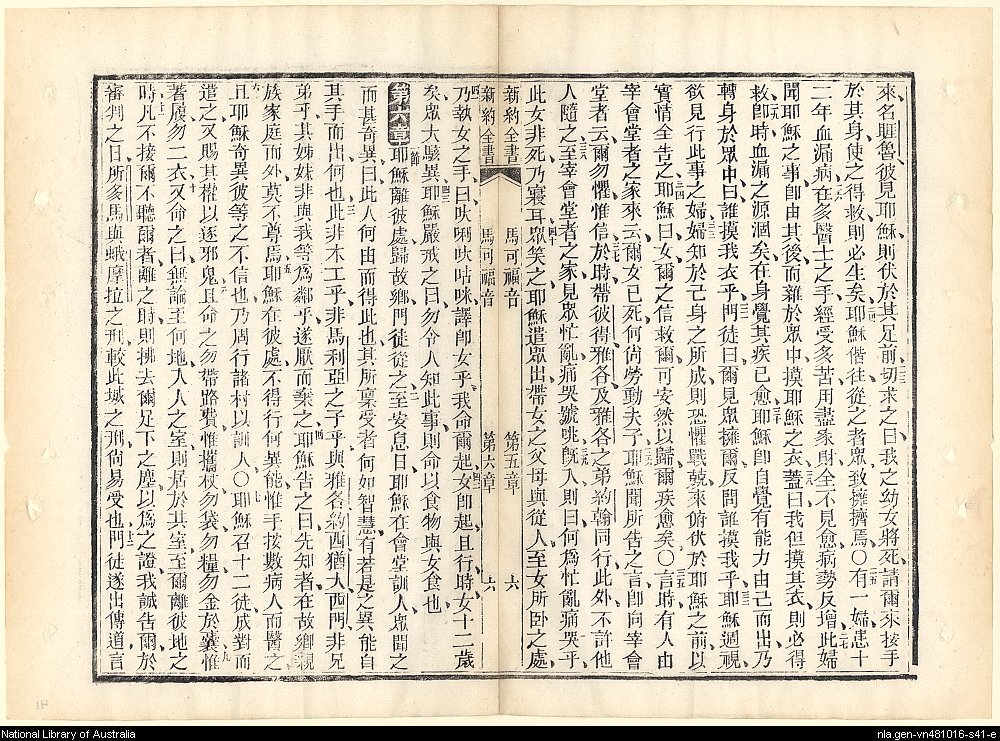 來名睚魯彼見耶穌則伏於其足前切求之曰我之幼女將死請爾來按手
於其身使之得救則必生矣耶穌偕往從之者眾致擁擠焉〇有一婦患十
二年血漏病在多醫士之手經受多苦用盡家財全不見愈病勢反增此婦
聞耶穌之事即由其後而雜於眾中摸耶穌之衣蓋曰我但摸其衣則必得
救即時血漏之源涸矣在身覺其疾已愈耶穌即自覺有能力由己而出乃
轉身於眾中曰誰摸我衣乎門徒曰爾見眾擁爾反問誰摸我乎耶穌週視
欲見行此事之婦婦知於己身之所成則恐懼戰兢來俯伏於耶穌之前以
實情全告之耶穌曰女爾之信救爾可安然以歸爾疾愈矣〇言時有人由
宰會堂者之家來云爾女已死何尚勞動夫子耶穌聞所告之言即向宰會
堂者云爾勿懼惟信於時帶彼得雅各及雅各之弟約翰同行此外不許他
人隨之至宰會堂者之家見眾忙亂痛哭號咷既入則曰何為忙亂痛哭乎
此女非死乃寢耳眾笑之耶穌遣眾出帶女之父母與從人至女所臥之處
新約全書 馬可福音 第五章 六
新約全書 馬可福音 第六章 六
乃執女之手曰呔唎呔咕咪譯即女乎我命爾起女即起且行時女十二歲
矣眾大駭異耶穌嚴戒之曰勿令人知此事則命以食物與女食也
第六章 一節 耶穌離彼處歸故鄉門徒從之至安息日耶穌在會堂訓人眾聞之
而甚奇異曰此人何由而得此也其所稟受者何如智慧有若是之異能自
其手而出何也此非木工乎非馬利亞之子乎與雅各約西猶大西門非兄
弟乎其姊妹非與我等為鄰乎遂厭而棄之耶穌告之曰先知者在故鄉親
族家庭而外莫不尊焉耶穌在彼處不得行何異能惟手按數病人而醫之
且耶穌奇異彼等之不信也乃周行諸村以訓人〇耶穌召十二徒成對而
遣之又賜其權以逐邪鬼且命之勿帶路費惟攜杖勿袋勿糧勿金於囊惟
著履勿二衣又命之曰無論至何地入人之室則居於其室至爾離彼地之
時凡不接爾不聽爾者離之時則拂去爾足下之塵以為之證我誠告爾於
審判之日所多馬與蛾摩拉之刑較此城之刑尚易受也門徒遂出傳道言
National Library of Australia
nla.gen-vn481016-s41-e